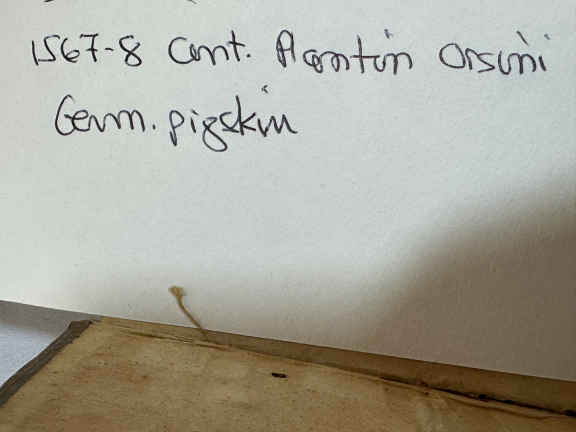 1567-8 Cont. Plantin Orsini
Germ. pigskin